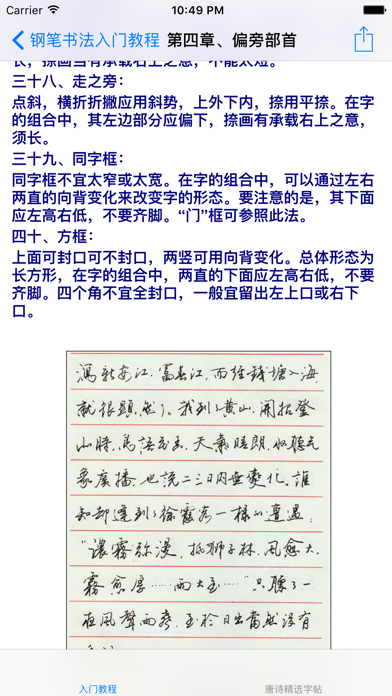 Carrier 10:49 PM
钢笔书法入门教程 第四章、偏旁部首
长，捺画当有承载右上之意，不能太短。
三十八、走之旁：
点斜，横折折撇应用斜势，上外下内，捺用平捺。在字
的组合中，其左边部分应偏下，捺画有承载右上之意，
须长。
三十九、同字框：
同字框不宜太窄或太宽。在字的组合中，可以通过左右
两直的向背变化来改变字的形态。要注意的是，其下面
应左高右低，不要齐脚。“门”框可参照此法。
四十、方框：
上面可封口可不封口，两竖可用向背变化。总体形态为
长方形，在字的组合中，两直的下面应左高右低，不要
齐脚。四个角不宜全封口，一般宜留出左上口或右下
口。
新安江，富春江，而经錢塘入海
就很題，我到了黄山，開始登
山時，鳥語花香，天氣晴朗，收聽气
象廣播，也說二三日内無變化。誰
知却逢到了徐霞客一樣的遭遇：
“濃霧弥漫，抵獅子林，風愈大，
霧愈厚……雨大至……”只聽了一
在風聲雨，至於日出當然没有
入门教程 唐诗精选字帖